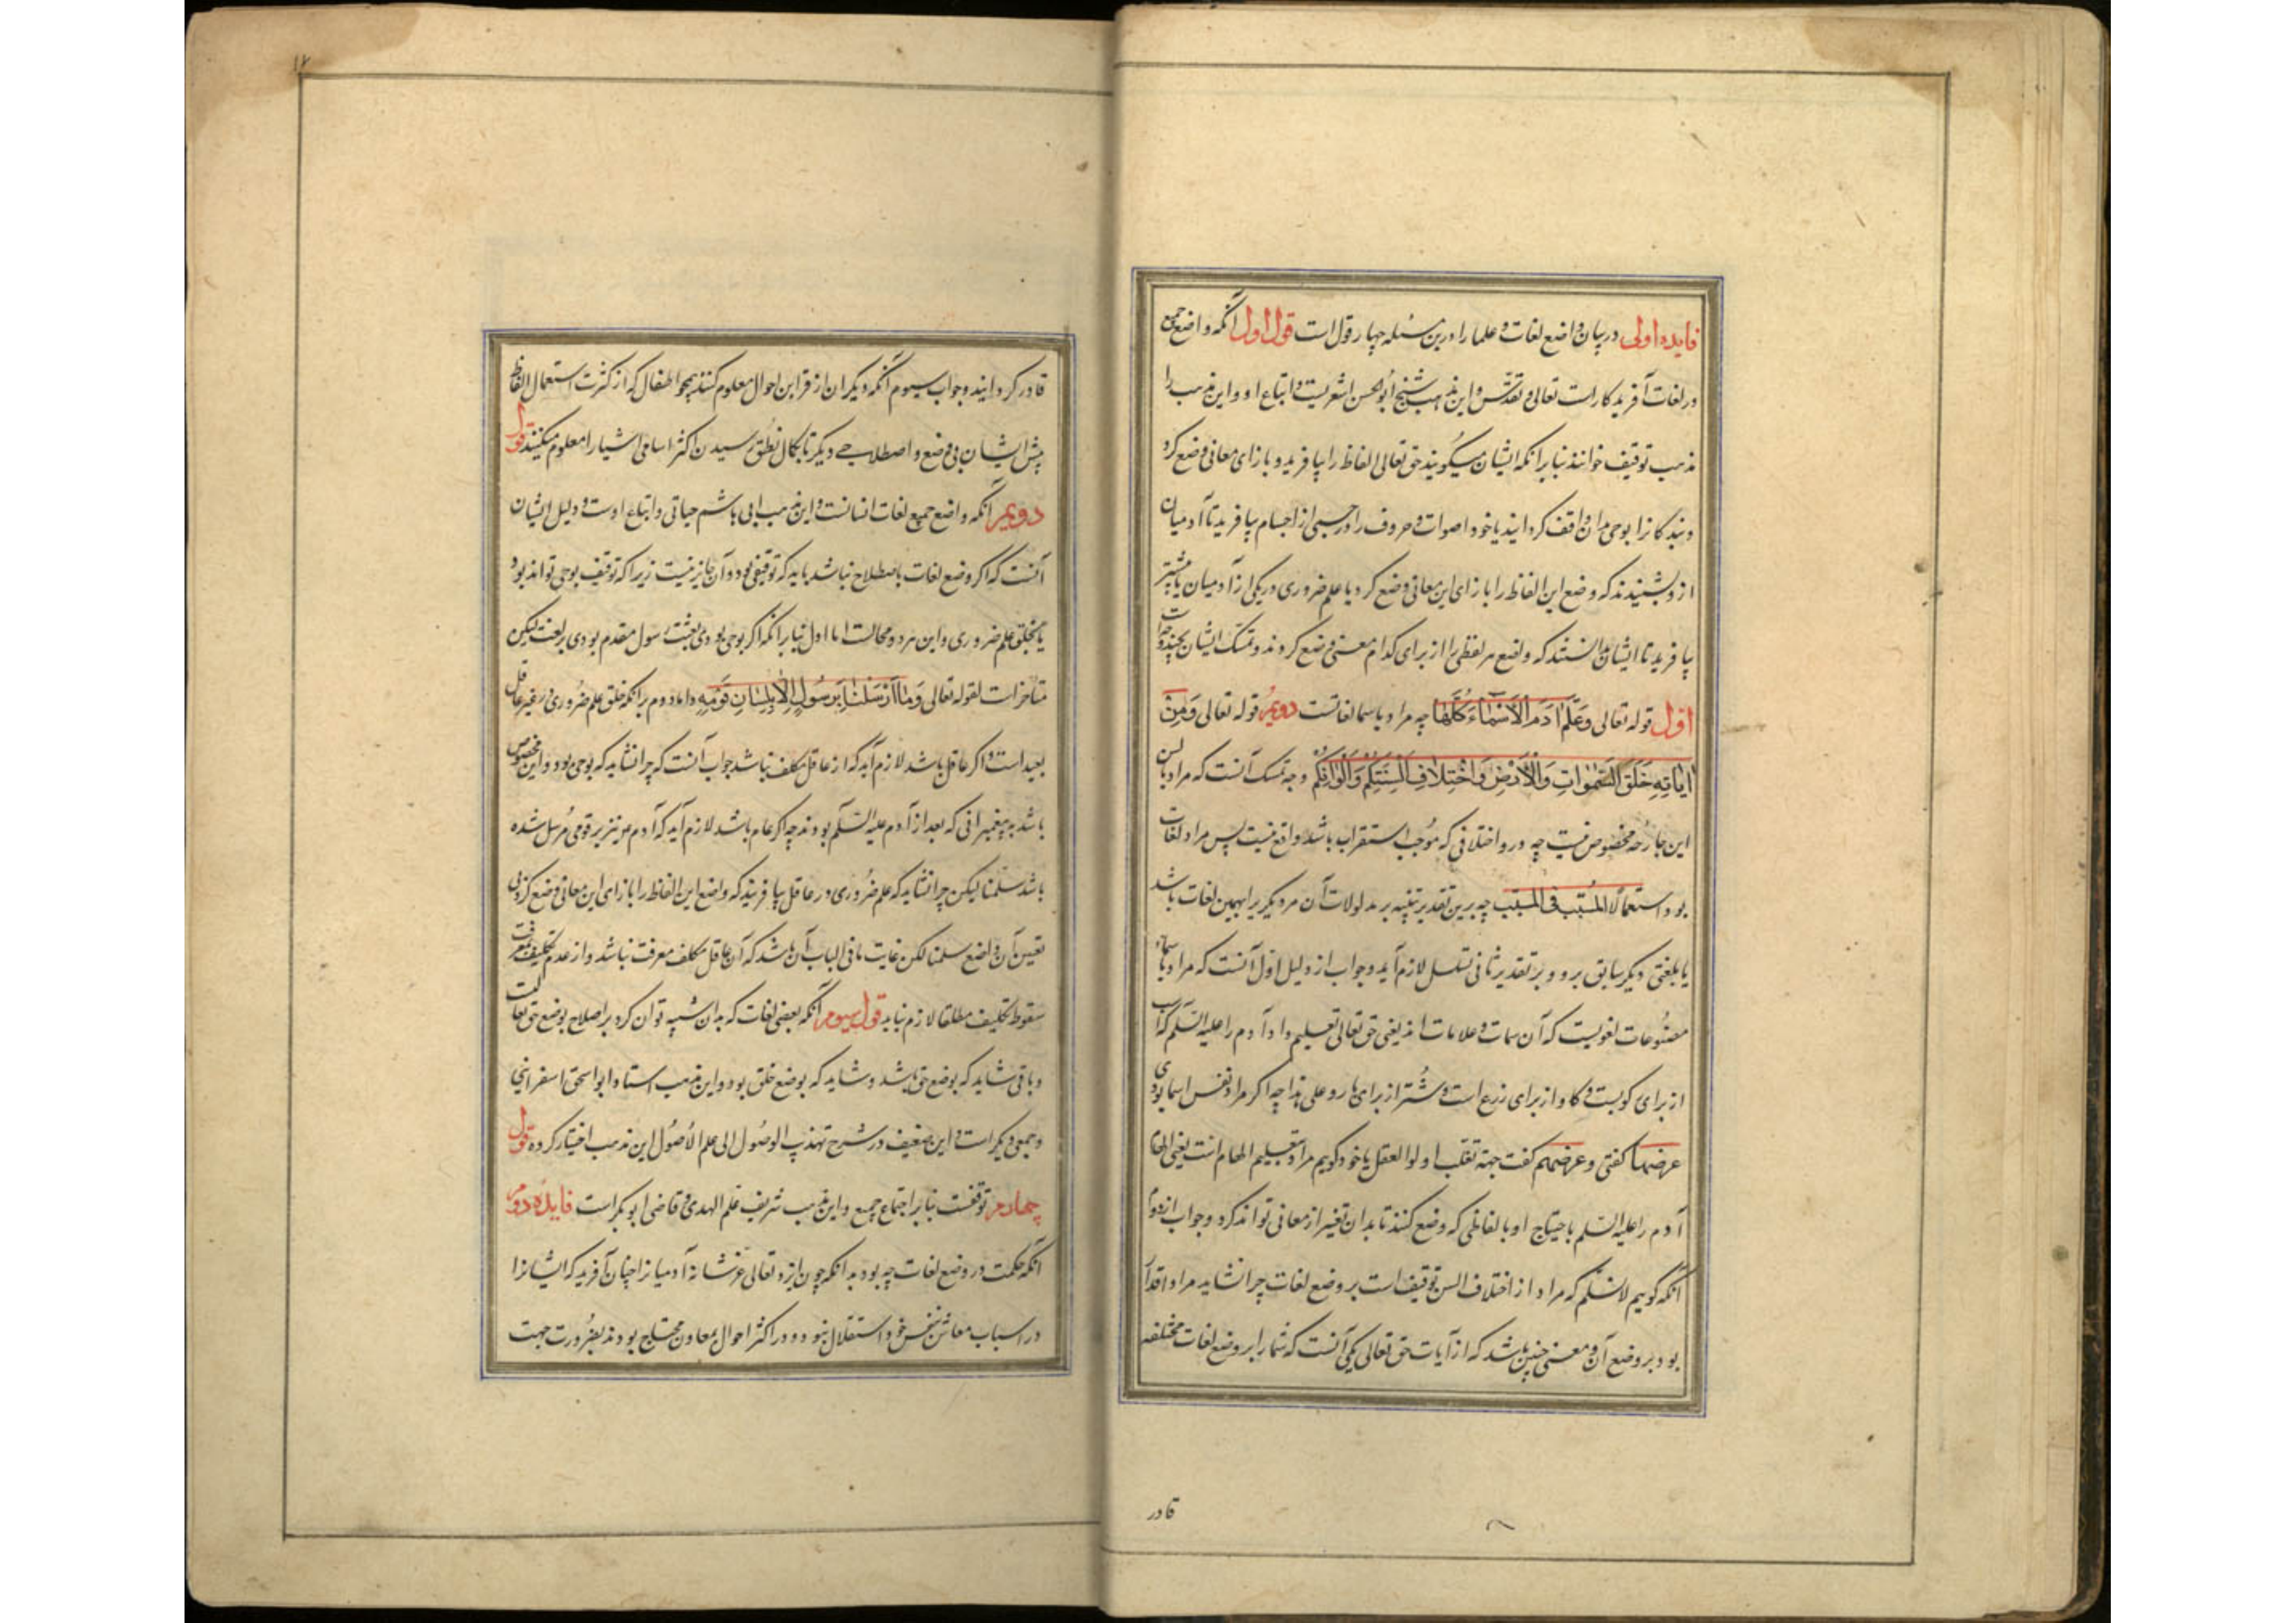 فایده اولی در بیان واضع لغات و علما را درین مسئله چهار قول است قول اول آنکه واضع جمیع
ور لغات آفریدکار است تعالی و تقدّس و این مذهب شیخ ابوالحسن اشعریست و اتباع او و این مذهب را
مذهب توقیف خوانند بنا برآنکه ایشان میگویند حق تعالی الفاظ را بیافرید و بازای معانی وضع کرد
و بندکانرا بوحی بران واقف کردانید یا خود اصوات و حروف را در جسمی از اجسام بیافرید تا آدمیان
ازو بشنیدند که وضع این الفاظ را بازای این معانی وضع کرد یا علم ضروری در یکی از آدمیان یا بیشتر
بیافرید تا ایشان بدانستند که واضع هر لفظی را از برای کدام معنی وضع کردند و تمسک ایشان بچند وجه است
اول قوله تعالی وَعَلَّمَ اٰدَمَ الْاَسْمَاءَ كُلَّهَا چه مراد باسما لغاتست دویم قوله تعالی وَمِنْ
اٰیَاتِهِ خَلْقُ السَّمٰوَاتِ وَالْاَرْضِ وَاخْتِلَافُ اَلْسِنَتِكُمْ وَاَلْوَانِكُمْ وجه تمسک آنست که مراد بالسن
این جارحه مخصوص نیست چه درو اختلافی که موجب استقراب باشد واقع نیست پس مراد لغات
بود استعمالًا المسَبّب فی المسَبّب چه برین تقدیر تنبیه بر مدلولات آن مر دیکریرا بهمین لغات باشد
یا بلغتی دیکر سابق برو و بر تقدیر ثانی تسلسل لازم آید و جواب از دلیل اول آنست که مراد باسماء
مصنوعات لغویست که آن سمات و علامات اند یعنی حق تعالی تعلیم داد آدم را علیه السّلم که اسب
از برای کویست و کاو از برای زرع است و شُتر از برای بار و علی هذا چه اکر مراد نفس اسما بودی
عرضها کفتی و عرضهم کفت جهة تقلب اولوا العقل یا خود کوییم مراد بتعلیم الهام است یعنی الهام
آدم را علیه السّلم باحتیاج او بالفاظی که وضع کنند تا بدان تغییر از معانی تواند کرد و جواب از دوم
آنکه کوییم لا نسلّم که مراد از اختلاف السن توقیف است بر وضع لغات چرا نشاید مراد اقدار
بود بر وضع آن و معنی چنین باشد که از آیات حق تعالی یکی آنست که شما را بر وضع لغات مختلفه
قادر
۱۲
قادر کردانید و جواب سیوم آنکه دیکران از قراین احوال معلوم کنند همچو اطفال که از کثرت استعمال الفاظ
پیش ایشان بی وضع و اصطلاحی دیکر تا بکمال نطق رسیدن اکثر اسامی اشیا را معلوم میکنند قول
دویم آنکه واضع جمیع لغات انسانست و این مذهب ابی هاشم جبائی و اتباع اوست و دلیل ایشان
آنست که اکر وضع لغات باصطلاح نباشد باید که توقیفی بود و آن جایز نیست زیرا که توقیف بوحی تواند بود
یا بخلق علم ضروری و این هر دو محالست اما اول بنا برآنکه اکر بوحی بودی بعثت رسول مقدم بودی بر لغت لیکن
متأخرات لقوله تعالی وَمَا اَرْسَلْنَا مِنْ رَسُولٍ اِلَّا بِلِسَانِ قَوْمِهِ و اما دوم برآنکه خلق علم ضروری در غیر عاقل
بعید است و اکر عاقل باشد لازم آید که از عاقل مکلف نباشد جواب آنست که چرا نشاید که بوحی بود و این مخصوص
باشد به پیغمبرانی که بعد از آدم علیه السّلم بودند چه اکر عام باشد لازم آید که آدم هم نیز بر قومی مُرسل شده
باشد سلّمنا لیکن چرا نشاید که علم ضُروری در عاقل بیافریند که واضع این الفاظ را بازای این معانی وضع کرد بی
تعیین آن واضع سلمنا لکن غایت ما فی الباب آن باشد که آن عاقل مکلف معرفت نباشد و از عدم تکلیف معرفت
سقوط تکلیف مطلقا لازم نیاید قول سیوم آنکه بعضی لغات که بدان تنبیه توان کرد بر اصلاح بوضع حق تعالیست
و باقی شاید که بوضع حق باشد و شاید که بوضع خلق بود و این مذهب استاد ابواسحق اسفراینی
و جمعی دیکر است و این ضعیف در شرح تهذیب الوصول الی علم الاُصُول این مذهب اختیار کرده قول
چهارم توقفست بنا بر اجتماع جمیع و این مذهب شریف علم الهدی و قاضی ابوبکر است فایده دوم
آنکه حکمت در وضع لغات چه بود بدانکه چون ایزد تعالی عز شانه آدمیانرا چنان آفرید که ایشانرا
در اسباب معاش بنفس خود استقلال نبود و در اکثر احوال بمعاون محتاج بودند بضرورت جهت